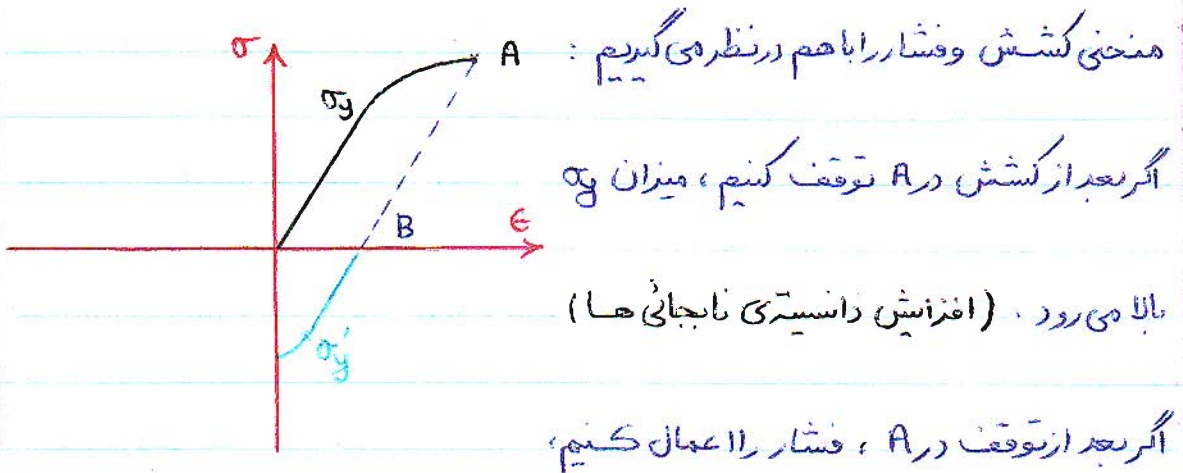 منحنی کشش و فشار را با هم در نظر می گیریم :
σ
A
σy
اگر بعد از کشش در A توقف کنیم ، میزان σy
B
ϵ
بالا می رود . (افزایش دانسیته‌ی نابجائی ها)
σ'y
اگر بعد از توقف در A ، فشار را اعمال کنیم ،